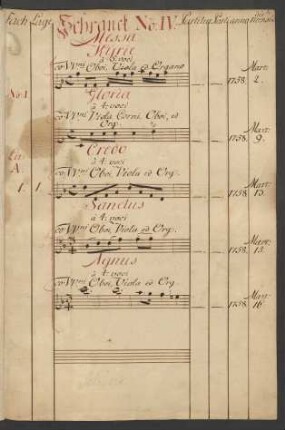 Fach Lage Schranck No: IV
Messa
Kyrie
à 4: voci
co VVni Oboi, Viola ed Organo
1758. Mart: 2.
No: 1
Gloria
à 4: voci
co VVni Viola Corni, Oboi, ed
Org:
1758. Mart: 9.
Credo
à 4: voci
co VVni Oboi, Viola ed Org:
1. 1. 1758. Mart: 13.
Sanctus
à 4: voci
co VVni Oboi, Viola ed Org:
1758. Mart:
Agnus
à 4: voci
co VVni Oboi, Viola ed Org:
1758. Mart: 16